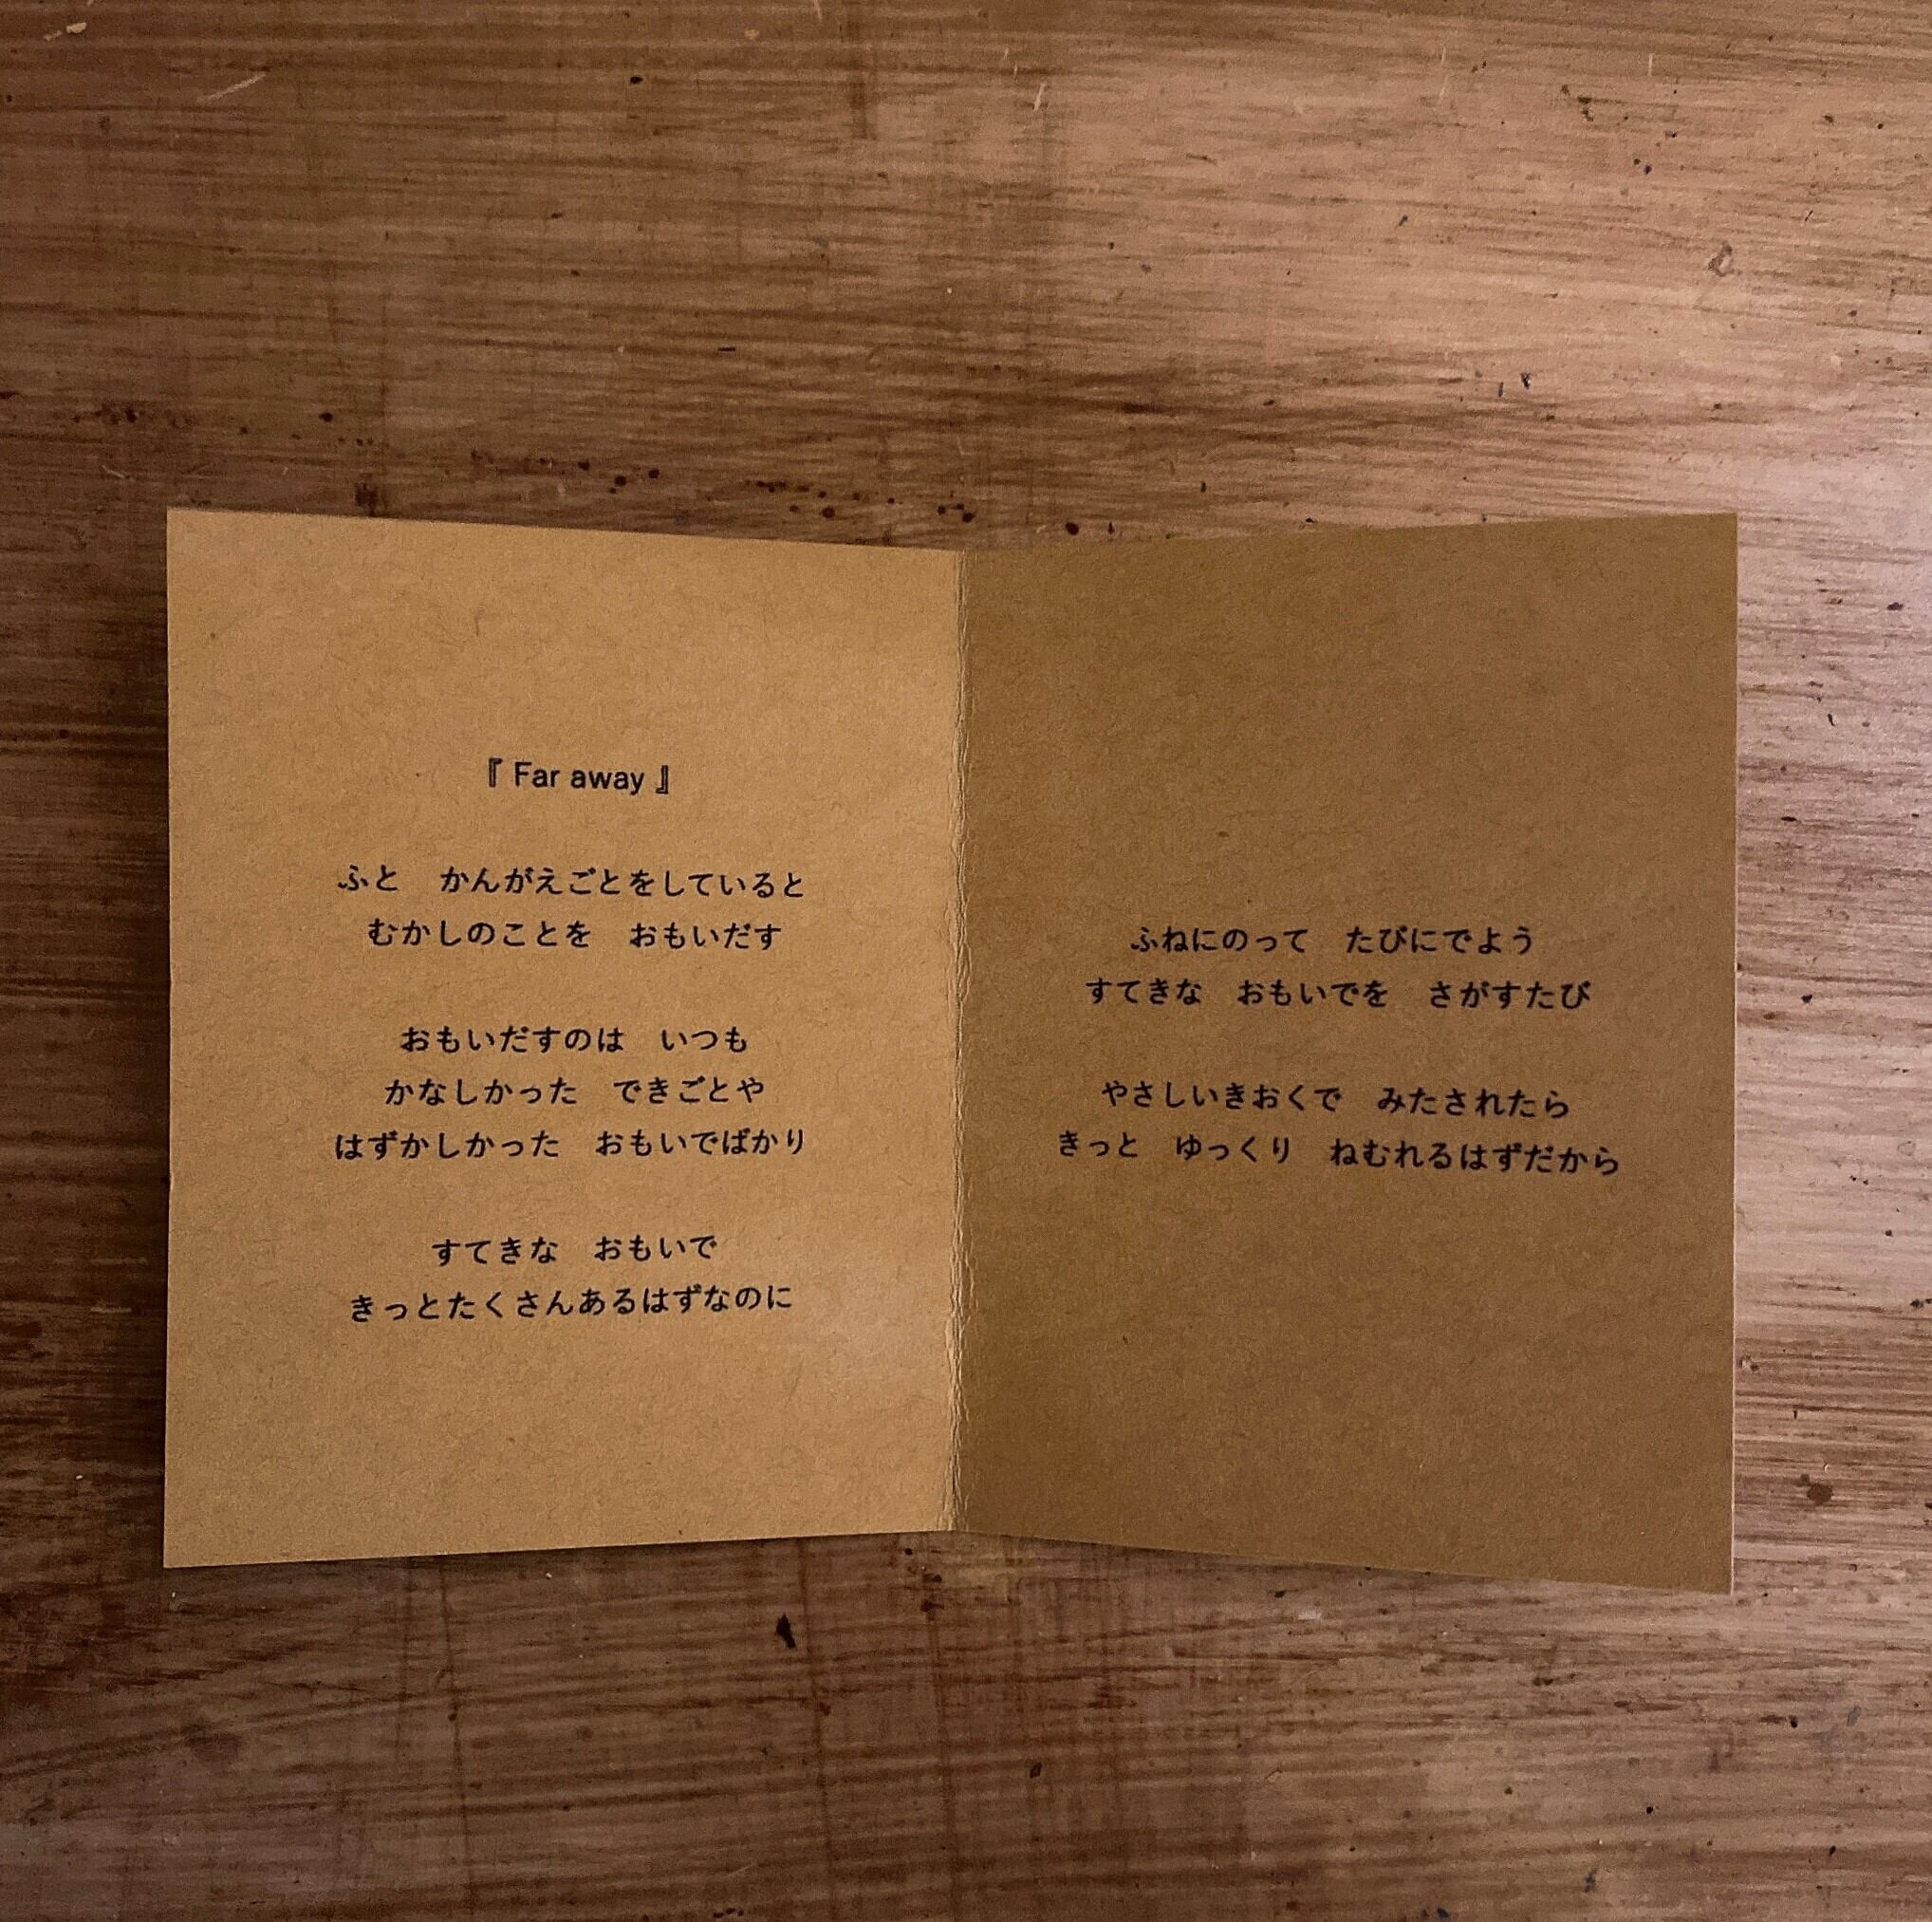 『 Far away 』
ふと　かんがえごとをしていると
むかしのことを　おもいだす
おもいだすのは　いつも
かなしかった　できごとや
はずかしかった　おもいでばかり
すてきな　おもいで
きっとたくさんあるはずなのに
ふねにのって　たびにでよう
すてきな　おもいでを　さがすたび
やさしいきおくで　みたされたら
きっと　ゆっくり　ねむれるはずだから